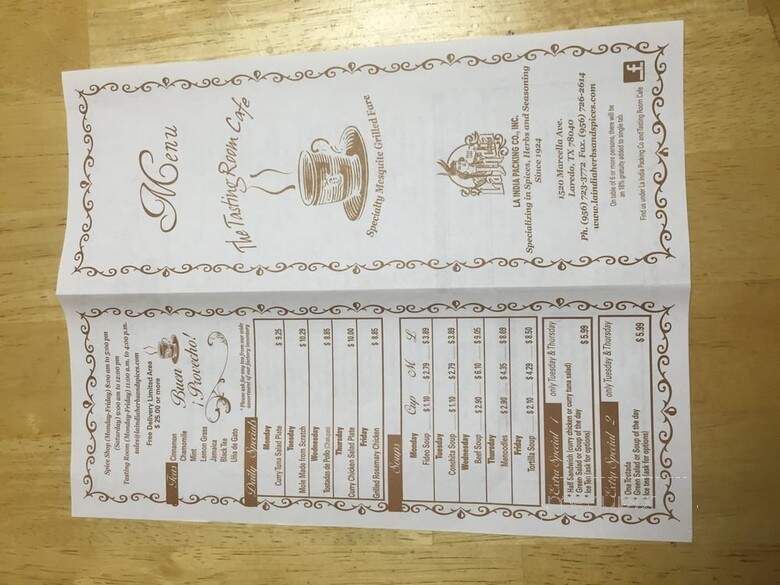 Spice Shop (Monday-Friday) 8:00 am to 5:00 pm
(Saturday) 9:00 am to 12:00 pm
Tasting Room (Monday-Friday) 11:00 a.m. to 4:00 p.m.
sales@laindiaherbsandspices.com
Free Delivery Limited Area
$ 25.00 or more
Teas
Cinnamon
Chamomile
Mint
Lemon Grass
Jamaica
Black Tea
Uña de Gato
Buen
¡ Provecho!
* Please ask for any tea from our wide
assortment of our factory inventory
Daily Specials
Monday
Curry Tuna Salad Plate $ 9.25
Tuesday
Mole Made from Scratch $ 10.29
Wednesday
Tostadas de Pollo $ 8.85
Thursday
Curry Chicken Salad Plate $ 10.00
Friday
Grilled Rosemary Chicken $ 8.85
Soups
Cup M L
Monday
Fideo Soup $ 1.10 $ 2.79 $ 3.89
Tuesday
Conchita Soup $ 1.10 $ 2.79 $ 3.89
Wednesday
Beef Soup $ 2.90 $ 6.10 $ 9.05
Thursday
Menudito $ 2.90 $ 4.35 $ 8.69
Friday
Tortilla Soup $ 2.10 $ 4.29 $ 8.50
Extra Special 1 only Tuesday & Thursday
* Half Sandwich (curry chicken or curry tuna salad)
* Green Salad or Soup of the day
* Ice Tea (ask for options) $ 5.99
Extra Special 2 only Tuesday & Thursday
* One Tostada
* Green Salad or Soup of the day
* Ice tea (ask for options) $ 5.99
Menu
The Tasting Room Cafe
Specialty Mesquite Grilled Fare
LA INDIA PACKING CO., INC.
Specializing in Spices, Herbs and Seasoning
Since 1924
1520 Marcella Ave.
Laredo, TX 78040
Ph. (956) 723-3772 Fax. (956) 726-2614
www.laindiaherbsandspices.com
On table of 6 or more persons, there will be
an 18% gratuity added to single tab.
Find us under La India Packing Co and Tasting Room Cafe
f